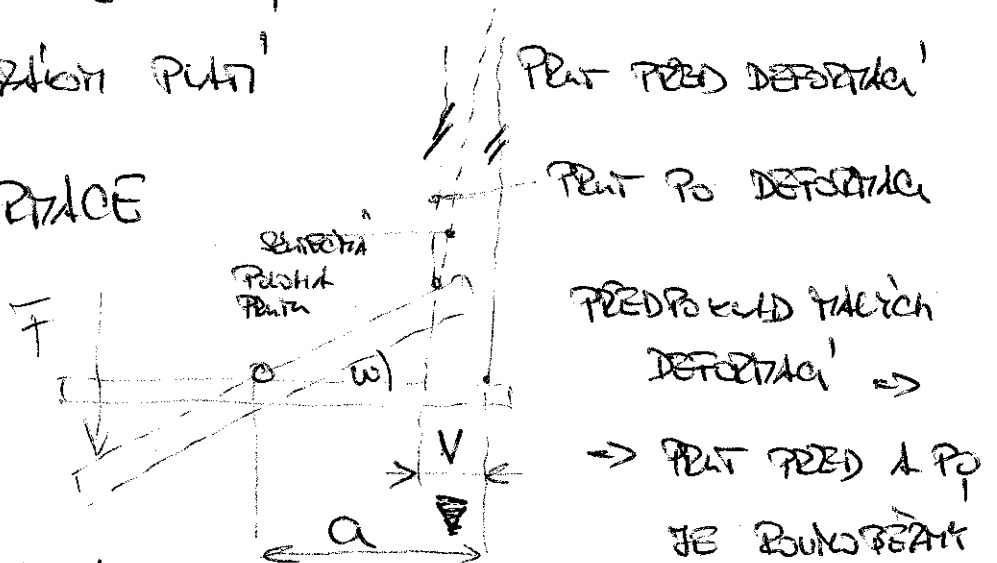 PLATÍ
PRUT PŘED DEFORMACÍ
PRUT PO DEFORMACI
RMACE
SKUTEČNÁ
POLOHA
PRUTU
F
PŘEDPOKLAD MALÝCH
DEFORMACÍ =>
ω
=> PRUT PŘED A PO
V
JE ROVNOBĚŽNÝ
a